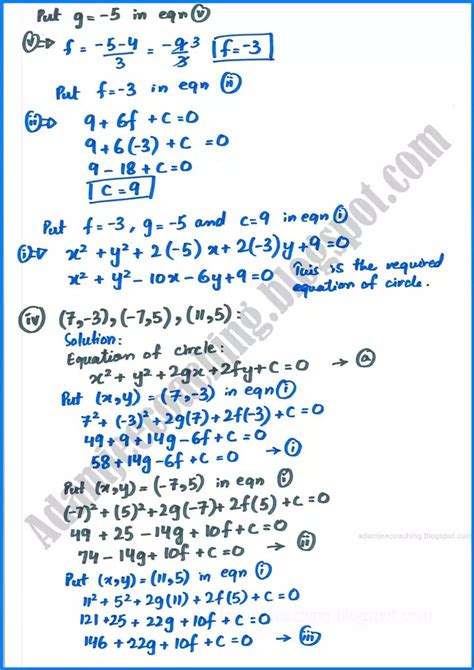 Put g = -5 in eqn (v)
(v)⇒ f = (-5-4)/3 = -9/3 3 f = -3
Put f = -3 in eqn (ii)
(ii)⇒ 9 + 6f + C = 0
9 + 6(-3) + C = 0
9 - 18 + C = 0
C = 9
Put f = -3, g = -5 and c = 9 in eqn (i)
(i)⇒ x² + y² + 2(-5)x + 2(-3)y + 9 = 0
x² + y² - 10x - 6y + 9 = 0 This is the required equation of circle.
(iv) (7,-3), (-7,5), (11,5):
Solution:
Equation of circle:
x² + y² + 2gx + 2fy + C = 0 → (a)
Put (x,y) = (7,-3) in eqn (i)
7² + (-3)² + 2g(7) + 2f(-3) + C = 0
49 + 9 + 14g - 6f + C = 0
58 + 14g - 6f + C = 0 → (i)
Put (x,y) = (-7,5) in eqn (i)
(-7)² + (5)² + 2g(-7) + 2f(5) + C = 0
49 + 25 - 14g + 10f + C = 0
74 - 14g + 10f + C = 0 → (ii)
Put (x,y) = (11,5) in eqn (i)
11² + 5² + 2g(11) + 2f(5) + C = 0
121 + 25 + 22g + 10f + C = 0
146 + 22g + 10f + C = 0 → (iii)
Adamjeecoaching.blogspot.com
adamjeecoaching.blogspot.com